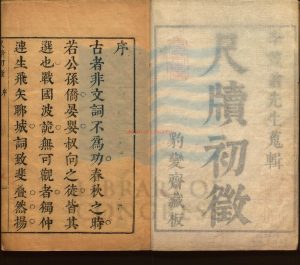 先生蒐輯
尺牘初徵
豹變齋藏板
序
古者非文詞不為功春秋之時
若公孫僑晏嬰叔向之徒皆其
選也戰國波詭無可觀者獨仲
連生飛矢聊城詞致斐亹然揚